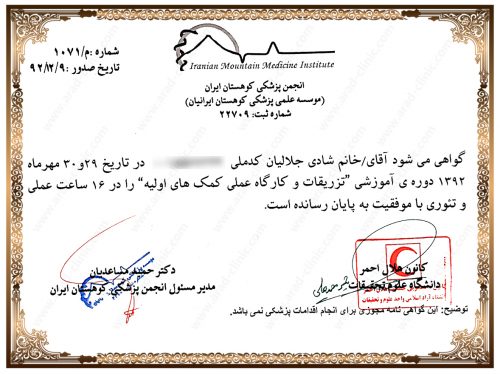 شماره :م/۱۰۷۱
تاریخ صدور :۹۲/۱۲/۹
Iranian Mountain Medicine Institute
انجمن پزشکی کوهستان ایران
(موسسه علمی پزشکی کوهستان ایرانیان)
شماره ثبت: ۲۲۷۰۹
گواهی می شود آقای/خانم شادی جلالیان کدملی در تاریخ ۲۹و۳۰ مهرماه
۱۳۹۲ دوره ی آموزشی "تزریقات و کارگاه عملی کمک های اولیه" را در ۱۶ ساعت عملی
و تئوری با موفقیت به پایان رسانده است.
کانون هلال احمر
دانشگاه علوم تحقیقات
دکتر حمید مساعدیان
مدیر مسئول انجمن پزشکی کوهستان ایران
توضیح: این گواهی نامه مجوزی برای انجام اقدامات پزشکی نمی باشد.